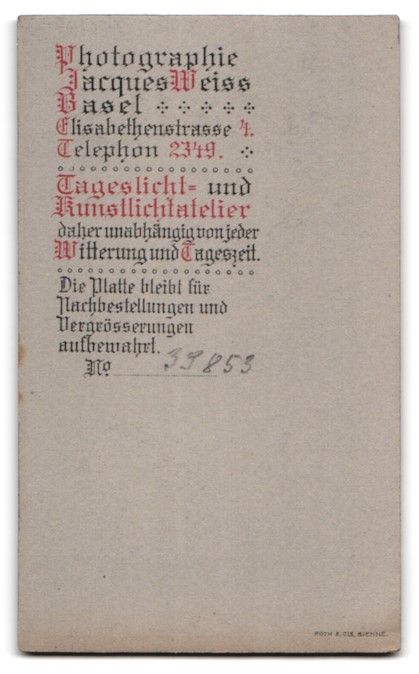 Photographie
Jacques Weiss
Basel
Elisabethenstrasse 4.
Telephon 2349.
Tageslicht= und
Kunstlichtatelier
daher unabhängig von jeder
Witterung und Tageszeit.
Die Platte bleibt für
Nachbestellungen und
Vergrösserungen
aufbewahrt.
No 39853
ROTH & CIE, BIENNE.